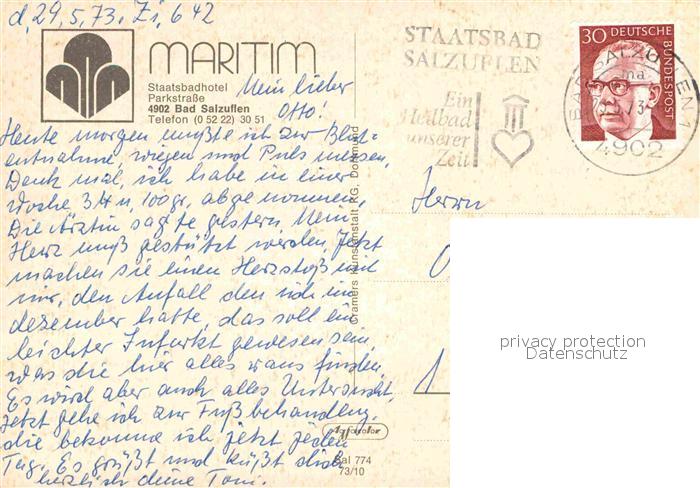 d. 29.5.73. Zi. 642
MARITIM
Staatsbadhotel
Parkstraße
4902 Bad Salzuflen
Telefon (0 52 22) 30 51
STAATSBAD
SALZUFLEN
Ein
Heilbad
unserer
Zeit
30 DEUTSCHE
BUNDESPOST
BAD SALZUFLEN 1
4902
Mein lieber
Otto!
Heute morgen mußte ich zur Blut-
entnahme, wiegen und Puls messen.
Denk mal, ich habe in einer
Woche 3 u. 100 gr. abgenommen.
Die Ärztin sagte gestern, Mein
Herz muß gestützt werden. Jetzt
machen sie einen Herzstoß mit
mir, den Anfall den ich im
dezember hatte, das soll ein
leichter Infarkt gewesen sein,
was die hier alles raus finden.
Es wird aber auch alles Untersucht,
Jetzt gehe ich zur Fußbehandlung.
die bekomme ich jetzt jeden
Tag. Es grüßt und küßt dich
herzlich deine Toni.
Herrn
Cramers Kunstanstalt KG, Dortmund
Sal 774
73/10
privacy protection
Datenschutz